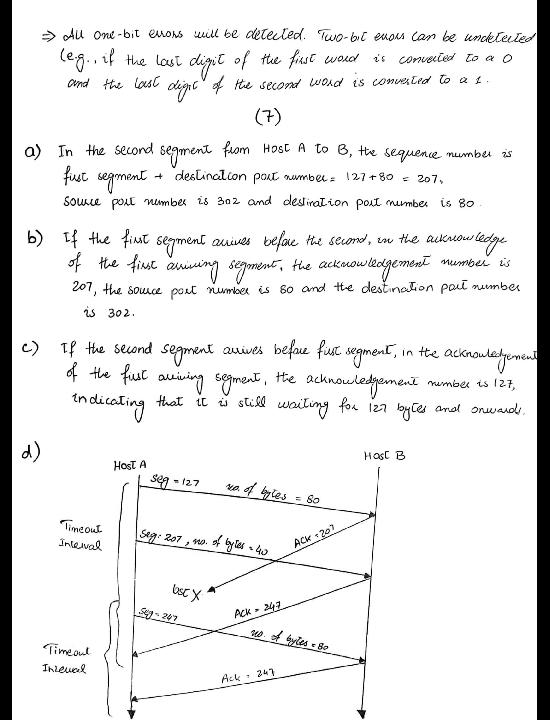 ⇒ All one-bit errors will be detected. Two-bit errors can be undetected
(e.g., if the last digit of the first word is converted to a 0
and the last digit of the second word is converted to a 1.
(7)
a) In the second segment from Host A to B, the sequence number is
first segment + destination port number = 127+80 = 207,
source port number is 302 and destination port number is 80.
b) If the first segment arrives before the second, in the acknowledge
of the first arriving segment, the acknowledgement number is
207, the source port number is 80 and the destination port number
is 302.
c) If the second segment arrives before first segment, in the acknowledgement
of the first arriving segment, the acknowledgement number is 127,
indicating that it is still waiting for 127 bytes and onwards.
d)
Host A
Host B
Seg = 127 no. of bytes = 80
Timeout
Interval
Seg: 207, no. of bytes = 40
Ack = 207
lost X
Ack = 247
Seg = 247 no. of bytes = 80
Timeout
Interval
Ack = 247